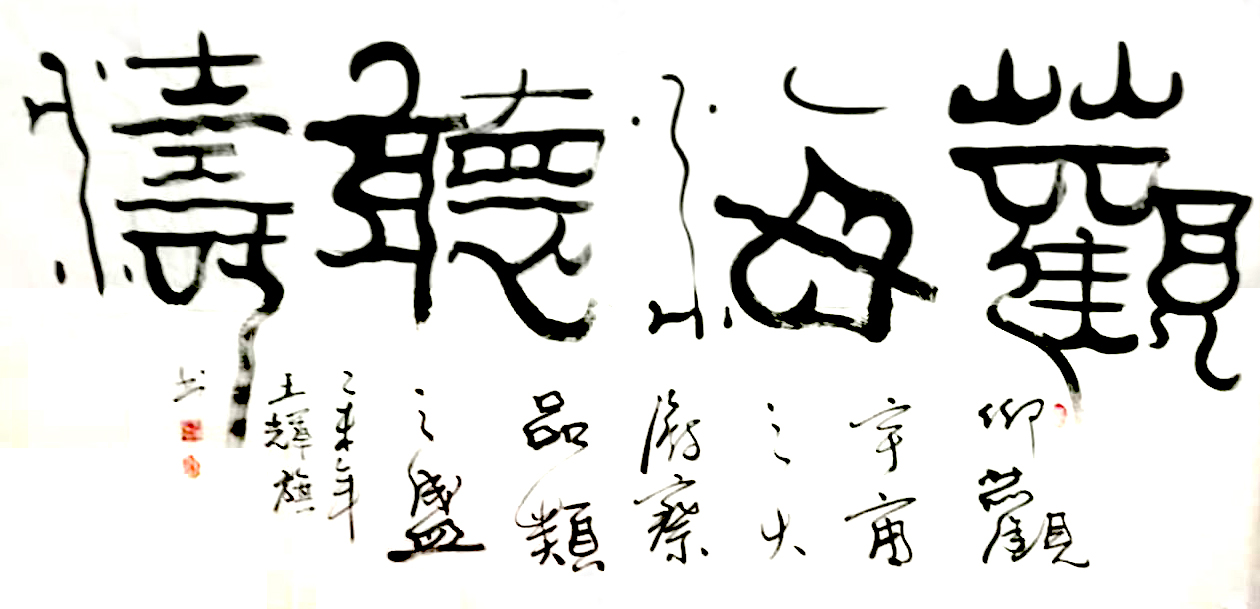 觀海聽濤
仰觀
宇宙
之大
俯察
品類
之盛
乙未年
王輝旗
书